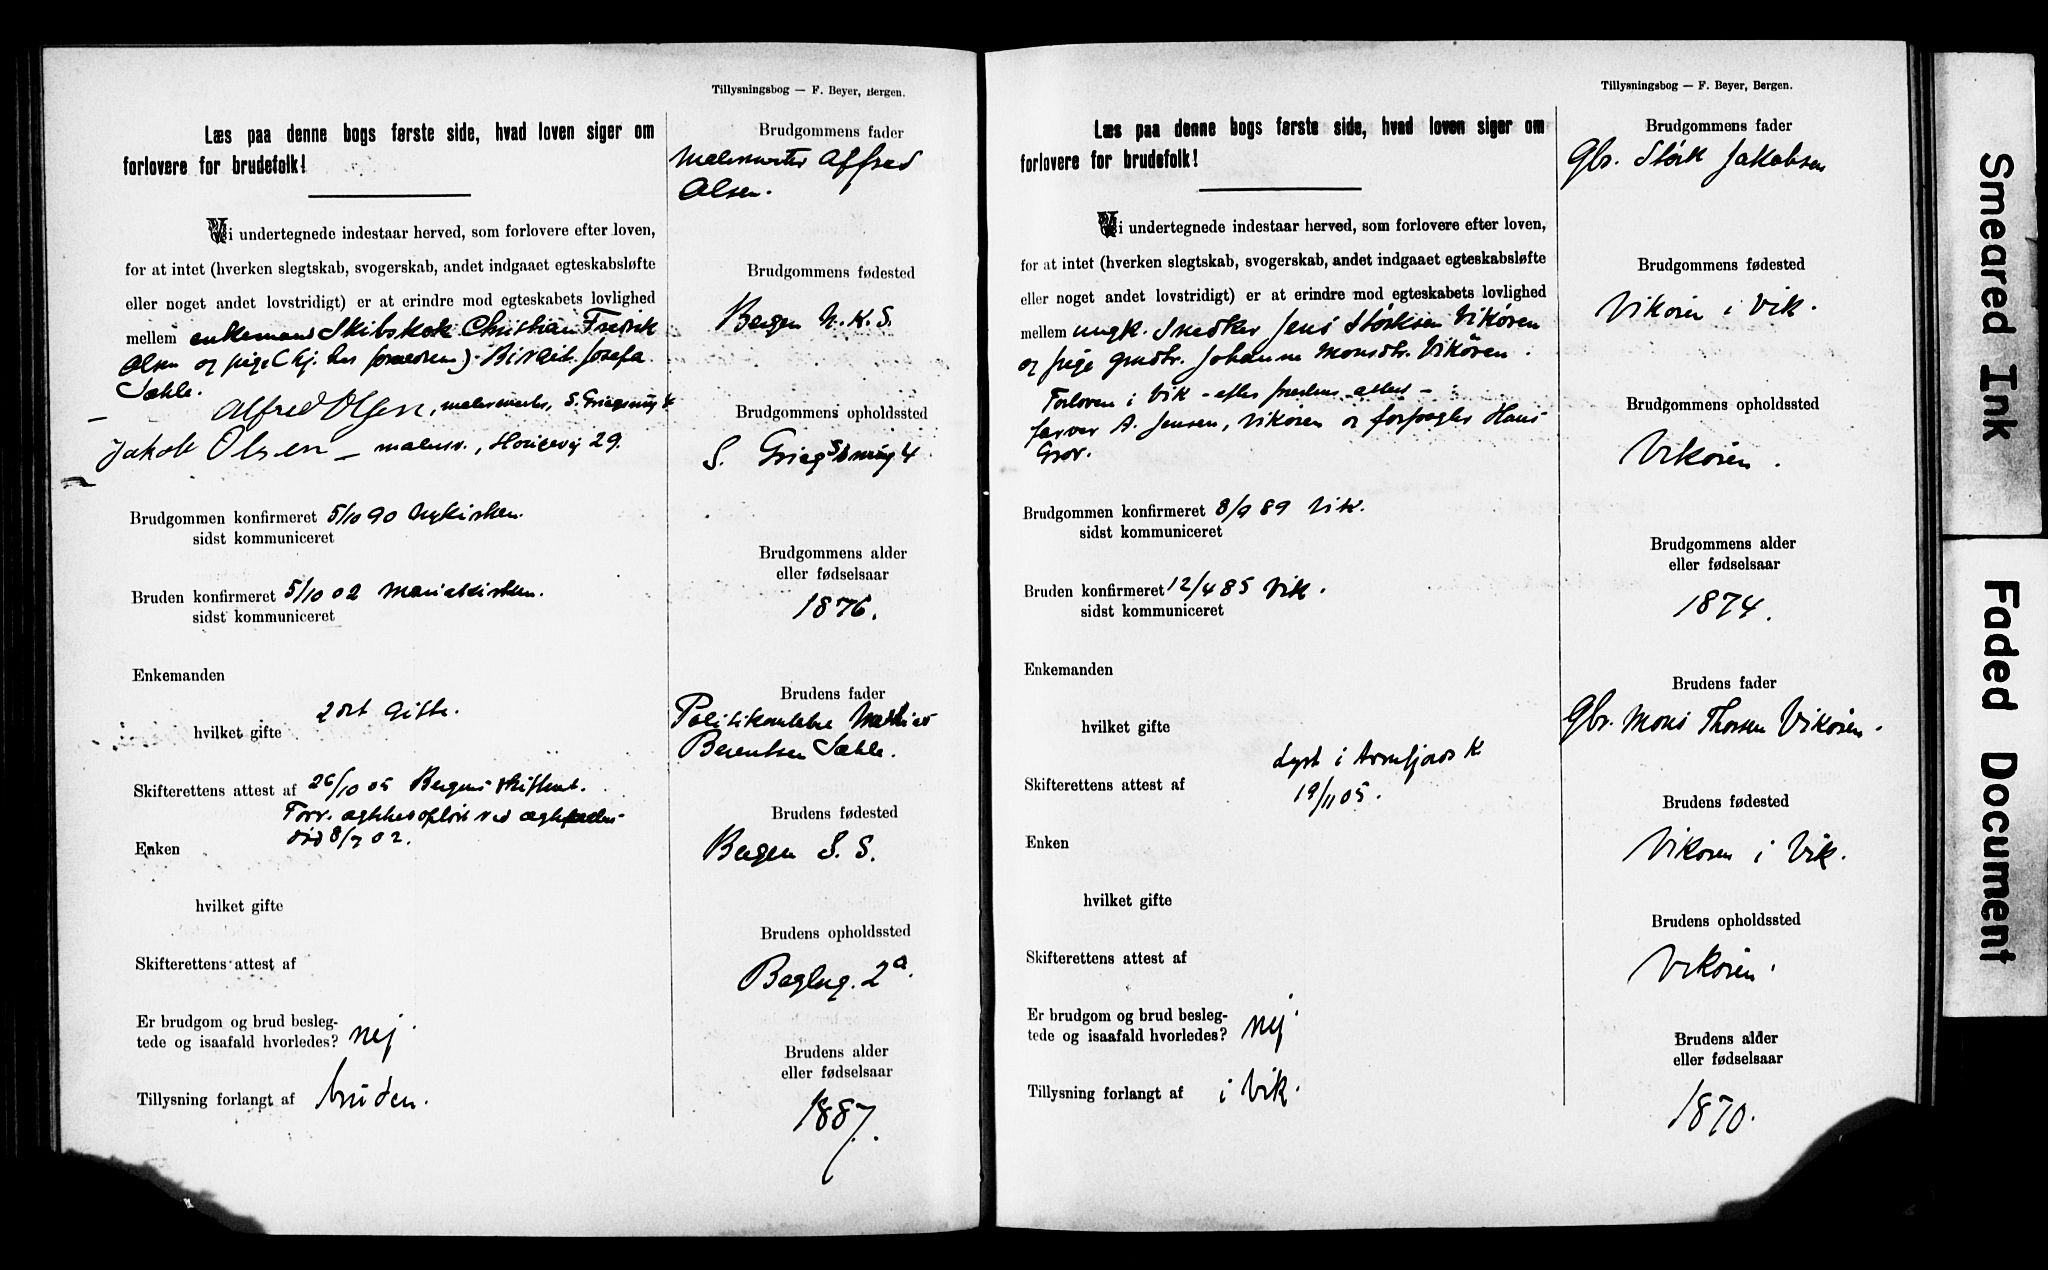 Tillysningsbog — F. Beyer, Bergen.
Læs paa denne bogs første side, hvad loven siger om
forlovere for brudefolk!
Vi undertegnede indestaar herved, som forlovere efter loven,
for at intet (hverken slegtskab, svogerskab, andet indgaaet egteskabsløfte
eller noget andet lovstridigt) er at erindre mod egteskabets lovlighed
mellem enkemand Skibskok Christian Fredrik
Olsen og pige (hj. hos forældren) Birgit Josefa
Sæhle.
Alfred Olsen, malermester, S. Griegsmug 4
Jakob Olsen — malersv., 29.
Brudgommen konfirmeret 5/10 90 Nykirken.
sidst kommuniceret
Bruden konfirmeret 5/10 02 Mariakirken.
sidst kommuniceret
Enkemanden
2det gifte.
hvilket gifte
Skifterettens attest af 26/10 05 Bergens skifteret.
Forr. ægtesk opløst ved
død 8/7 02.
Enken
hvilket gifte
Skifterettens attest af
Er brudgom og brud besleg-
tede og isaafald hvorledes? nej
Tillysning forlangt af bruden.
Brudgommens fader
Malermester Alfred
Olsen.
Brudgommens fødested
Bergen N. K. S.
Brudgommens opholdssted
S. Griegsmug 4
Brudgommens alder
eller fødselsaar
1876.
Brudens fader
Politikonstabel Mathias
Berentsen Sæhle.
Brudens fødested
Bergen S. S.
Brudens opholdssted
2a.
Brudens alder
eller fødselsaar
1887.
Tillysningsbog — F. Beyer, Bergen.
Læs paa denne bogs første side, hvad loven siger om
forlovere for brudefolk!
Vi undertegnede indestaar herved, som forlovere efter loven,
for at intet (hverken slegtskab, svogerskab, andet indgaaet egteskabsløfte
eller noget andet lovstridigt) er at erindre mod egteskabets lovlighed
mellem ungk. Snedker Jens Størksen Vikøren
og pige gmdtr. Johanne Monsdtr. Vikøren.
Forlovere i Vik — efter prestens attest —
farver A. Jensen, Vikøren og forpagter Hans
Grov.
Brudgommen konfirmeret 8/9 89 Vik.
sidst kommuniceret
Bruden konfirmeret 12/4 85 Vik.
sidst kommuniceret
Enkemanden
hvilket gifte
Lyst i Arnefjords K
Skifterettens attest af
19/11 05.
Enken
hvilket gifte
Skifterettens attest af
Er brudgom og brud besleg-
tede og isaafald hvorledes? nej
Tillysning forlangt af i Vik.
Brudgommens fader
Gbr. Størk Jakobsen
Brudgommens fødested
Vikøren i Vik.
Brudgommens opholdssted
Vikøren.
Brudgommens alder
eller fødselsaar
1874.
Brudens fader
Gbr. Mons Thorsen Vikøren.
Brudens fødested
Vikøren i Vik.
Brudens opholdssted
Vikøren.
Brudens alder
eller fødselsaar
1870.
Smeared Ink
Faded Document